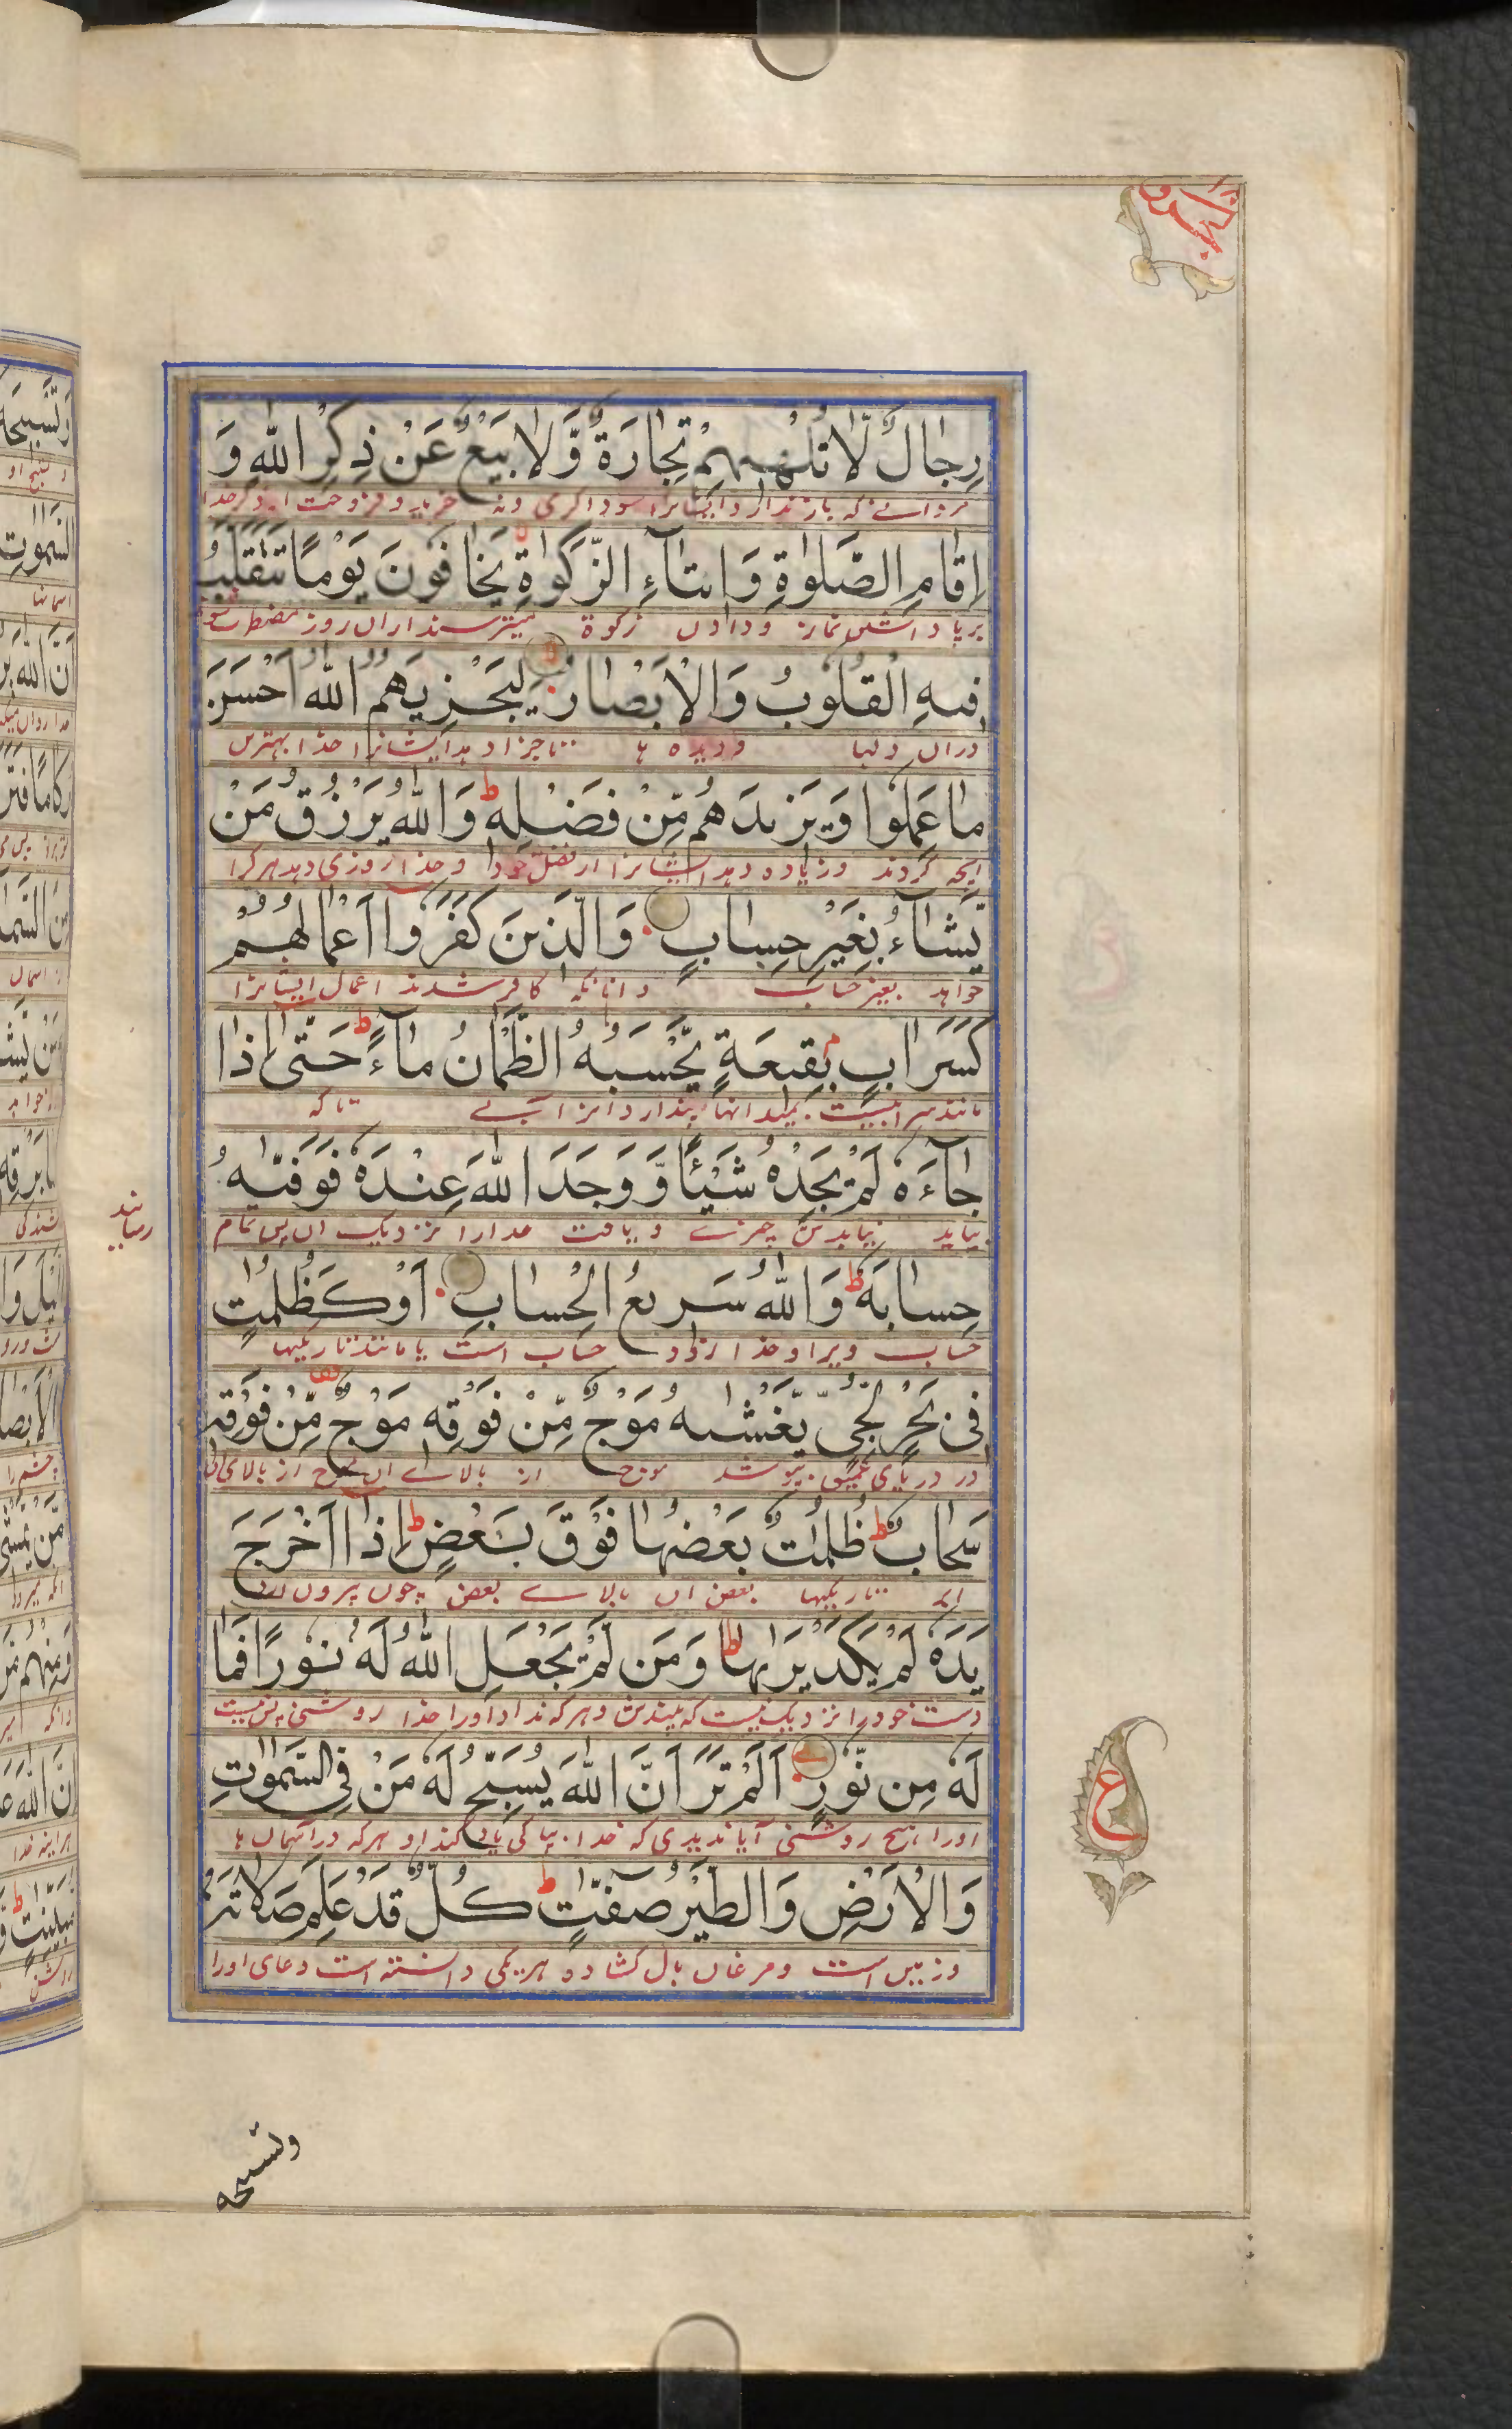 رِجَالٌ لَّا تُلْهِيهِمْ تِجَارَةٌ وَّلَا بَيْعٌ عَنْ ذِكْرِ اللّٰهِ وَ
اِقَامِ الصَّلٰوةِ وَ اِيْتَآءِ الزَّكٰوةِ يَخَافُوْنَ يَوْمًا تَتَقَلَّبُ
برپا داشتن نماز و دادن زکوة میترسند از ان روز مضطرب شود
فِيهِ الْقُلُوبُ وَالْاَبْصَارُ لِيَجْزِيَهُمُ اللّٰهُ اَحْسَنَ
دران دلها و دیده ها تا جزا دهد ایشانرا خدا بهترین
مَا عَمِلُوا وَيَزِيدَهُمْ مِّنْ فَضْلِهٖ ط وَاللّٰهُ يَرْزُقُ مَنْ
انچه کردند و زیاده دهد ایشانرا از فضل خود و خدا روزی دهد هر کرا
يَّشَآءُ بِغَيْرِ حِسَابٍ وَالَّذِينَ كَفَرُوا اَعْمَالُهُمْ
خواهد بغیر حساب و انانکه کافر شدند اعمال ایشانرا
كَسَرَابٍ بِقِيعَةٍ يَّحْسَبُهُ الظَّمْاٰنُ مَآءً ط حَتّٰى اِذَا
تا که
جَآءَهٗ لَمْ يَجِدْهُ شَيْئًا وَّوَجَدَ اللّٰهَ عِنْدَهٗ فَوَفّٰىهُ
بیاید نیابدش چیزے و یافت خدارا نزدیک ان پس تمام
رسانید
حِسَابَهٗ ط وَاللّٰهُ سَرِيعُ الْحِسَابِ اَوْ كَظُلُمٰتٍ
حساب ویرا و خدا زود حساب است یا مانند تاریکیها
فِى بَحْرٍ لُّجِّىٍّ يَّغْشٰىهُ مَوْجٌ مِّنْ فَوْقِهٖ مَوْجٌ مِّنْ فَوْقِهٖ
در دریای عمیق بپوشد موج از بالاے ان موج از بالای ان
سَحَابٌ ط ظُلُمٰتٌ بَعْضُهَا فَوْقَ بَعْضٍ ط اِذَا اَخْرَجَ
ابر تاریکیها بعض ان بالاے بعض چون بیرون ارد
يَدَهٗ لَمْ يَكَدْ يَرٰىهَا ط وَمَن لَّمْ يَجْعَلِ اللّٰهُ لَهٗ نُوْرًا فَمَا
دست خود را نزدیک نیست که بیندش و هر که نداد اورا خدا روشنی پس نیست
لَهٗ مِن نُّوْرٍ اَلَمْ تَرَ اَنَّ اللّٰهَ يُسَبِّحُ لَهٗ مَنْ فِى السَّمٰوٰتِ
اورا هیچ روشنی آیا ندیدی که خدا بپاکی یاد کند او هر که در آسمان ها
وَالْاَرْضِ وَالطَّيْرُ صٰٓفّٰتٍ ط كُلٌّ قَدْ عَلِمَ صَلَاتَهٗ
و زمین است و مرغان بال کشاده هر یکی دانسته است دعای اورا
ع
وتسبیحه